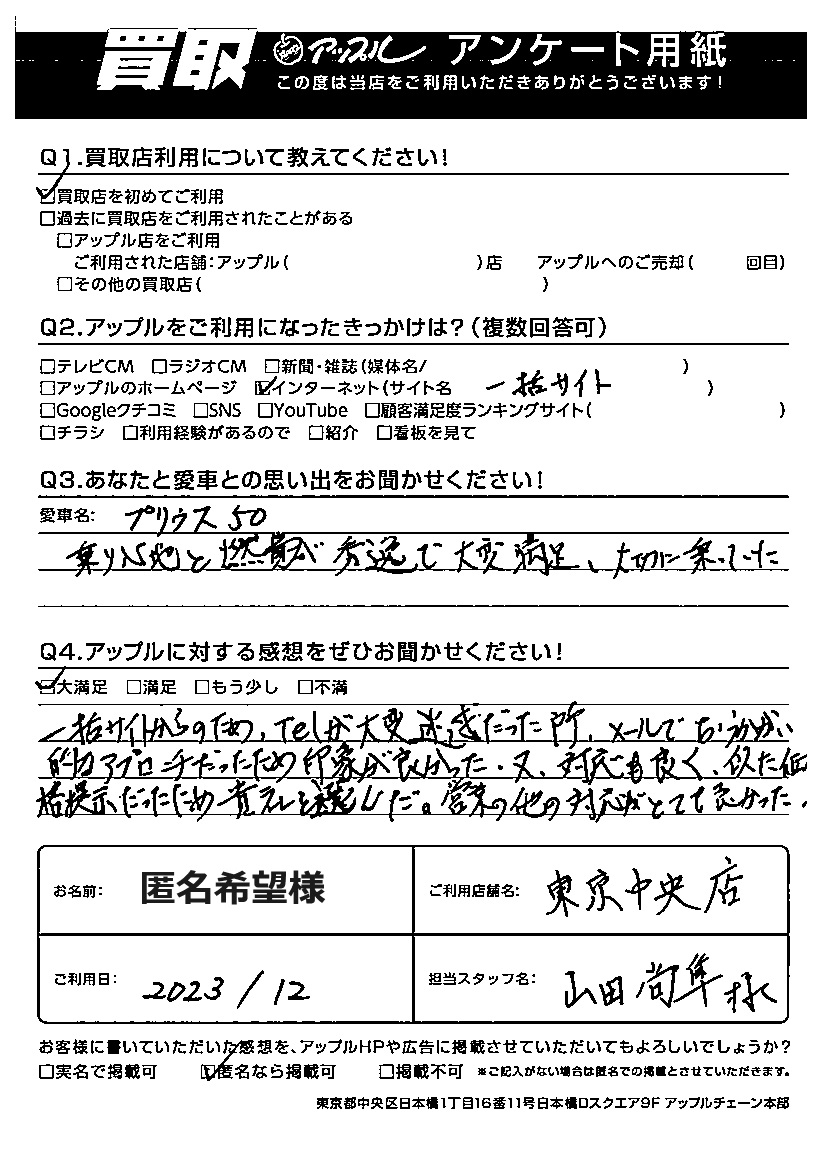 買取 アップル アンケート用紙
この度は当店をご利用いただきありがとうございます!
Q1.買取店利用について教えてください!
☑買取店を初めてご利用
□過去に買取店をご利用されたことがある
□アップル店をご利用
ご利用された店舗:アップル( )店 アップルへのご売却( 回目)
□その他の買取店( )
Q2.アップルをご利用になったきっかけは?(複数回答可)
□テレビCM □ラジオCM □新聞・雑誌(媒体名/ )
□アップルのホームページ ☑インターネット(サイト名 一括サイト )
□Googleクチコミ □SNS □YouTube □顧客満足度ランキングサイト( )
□チラシ □利用経験があるので □紹介 □看板を見て
Q3.あなたと愛車との思い出をお聞かせください!
愛車名: プリウス50
乗り心地と燃費が秀逸で大変満足、大切に乗っていた
Q4.アップルに対する感想をぜひお聞かせください!
☑大満足 □満足 □もう少し □不満
一括サイトからのため、Telが大変迷惑だった所、メールで
的なアプローチだったため印象が良かった。又、対応も良く、似た価
格提示だったため を選んだ。営業の他の対応がとても良かった。
お名前: 匿名希望様
ご利用店舗名: 東京中央店
ご利用日: 2023/12
担当スタッフ名: 山田尚隼様
お客様に書いていただいた感想を、アップルHPや広告に掲載させていただいてもよろしいでしょうか?
□実名で掲載可 ☑匿名なら掲載可 □掲載不可 ※ご記入がない場合は匿名での掲載とさせていただきます。
東京都中央区日本橋1丁目16番11号日本橋Dスクエア9F アップルチェーン本部